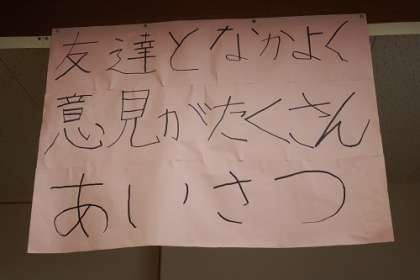 友達となかよく
意見がたくさん
あいさつ